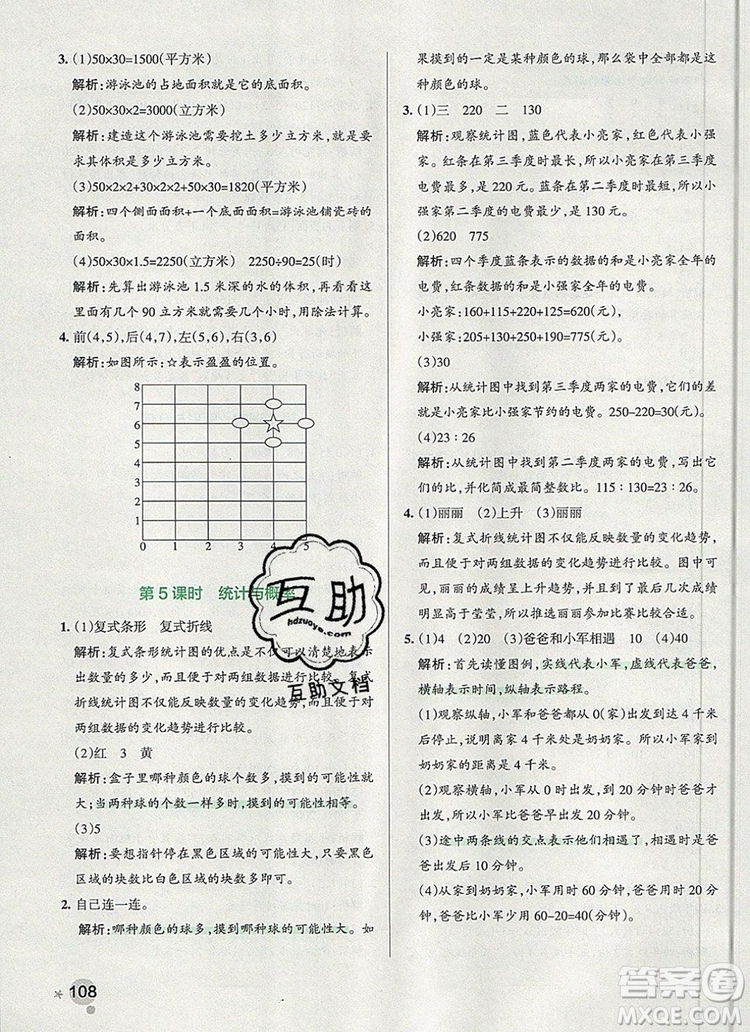 3. (1)50×30=1500(平方米)
解析:游泳池的占地面积就是它的底面积。
(2)50×30×2=3000(立方米)
解析:建造这个游泳池需要挖土多少立方米,就是要
求其体积是多少立方米。
(3)50×2×2+30×2×2+50×30=1820(平方米)
解析:四个侧面面积+一个底面面积=游泳池铺瓷砖的
面积。
(4)50×30×1.5=2250(立方米) 2250÷90=25(时)
解析:先算出游泳池 1.5 米深的水的体积,再看看这
里面有几个 90 立方米就用几个小时,用除法计算。
4. 前(4,5),后(4,7),左(5,6),右(3,6)
解析:如图所示:☆表示盈盈的位置。
8
7
6
5
4
3
2
1
0 1 2 3 4 5
第 5 课时 统计与概率
1. (1)复式条形 复式折线
解析:复式条形统计图的优点是不仅可以清楚地表示
数量的多少,而且便于对两组数据进行比较。复式
折线统计图不仅能反映数量的变化趋势,而且便于对
两组数据的变化趋势进行比较。
(2)红 3 黄
解析:盒子里哪种颜色的球个数多,摸到的可能性就
大;当两种球的个数一样多时,摸到的可能性相等。
(3)5
解析:要想指针停在黑色区域的可能性大,黑色区域
的块数比白色区域的块数多即可。
2. 自己连一连。
解析:哪种颜色的球多,摸到哪种球的可能性大。如
108
果摸到的一定是某种颜色的球,那么袋中全部都是这
种颜色的球。
3. (1)三 220 二 130
解析:观察统计图,蓝色代表小亮家,红色代表小强
家。蓝条在第三季度时最长,所以小亮家第三季度用
电最多,是 220 元。红条在第二季度时最短,所以小
强家第二季度的电费最少,是 130 元。
(2)620 775
解析:四个季度蓝条表示的数据的和是小亮家全年的
电费,红条表示的数据的和是小强家全年的电费。
小亮家:160+115+220+125=620(元)
小强家:205+130+250+190=775(元)
(3)30
解析:从统计图中找到第三季度两家的电费,它们的差就
是小亮家比小强家节约的电费。250-220=30(元)。
(4)23∶26
解析:从统计图中找到第二季度两家的电费,写出它
们的比,并化简成最简整数比。115∶130=23∶26。
4. (1)丽丽 (2)上升 (3)丽丽
解析:复式折线统计图能反映出数量的变化趋势,便
于对两组数据的变化趋势进行比较。观察统计图发
现,丽丽的成绩呈上升趋势,且上升幅度较大,总成绩
明显高于莹莹,所以推选丽丽参加比赛比较合适。
5. (1)4 (2)20 (3)爸爸和小军相遇 10 (4)40
解析:首先读懂图例,实线代表小军,虚线代表爸爸,
横轴表示时间,纵轴表示路程。
(1)观察纵轴,小军和爸爸都从 0(家)出发到达 4 千米
后停止,说明离家 4 千米处就是奶奶家,所以小军家到奶奶
家的距离是 4 千米。
(2)观察横轴,小军从 0 时出发,爸爸从 20 分钟时出
发,所以小军比爸爸早出发 20 分钟。
(3)途中两条线的交点表示他们相遇了,小军比爸爸
早到 10 分钟。
(4)从家到奶奶家,小军用时 60 分钟,爸爸用时 20 分
钟,所以爸爸比小军少用 60-20=40(分钟)。
互助
hdzuoye.com
互助文档
答案圈
MXQE.COM